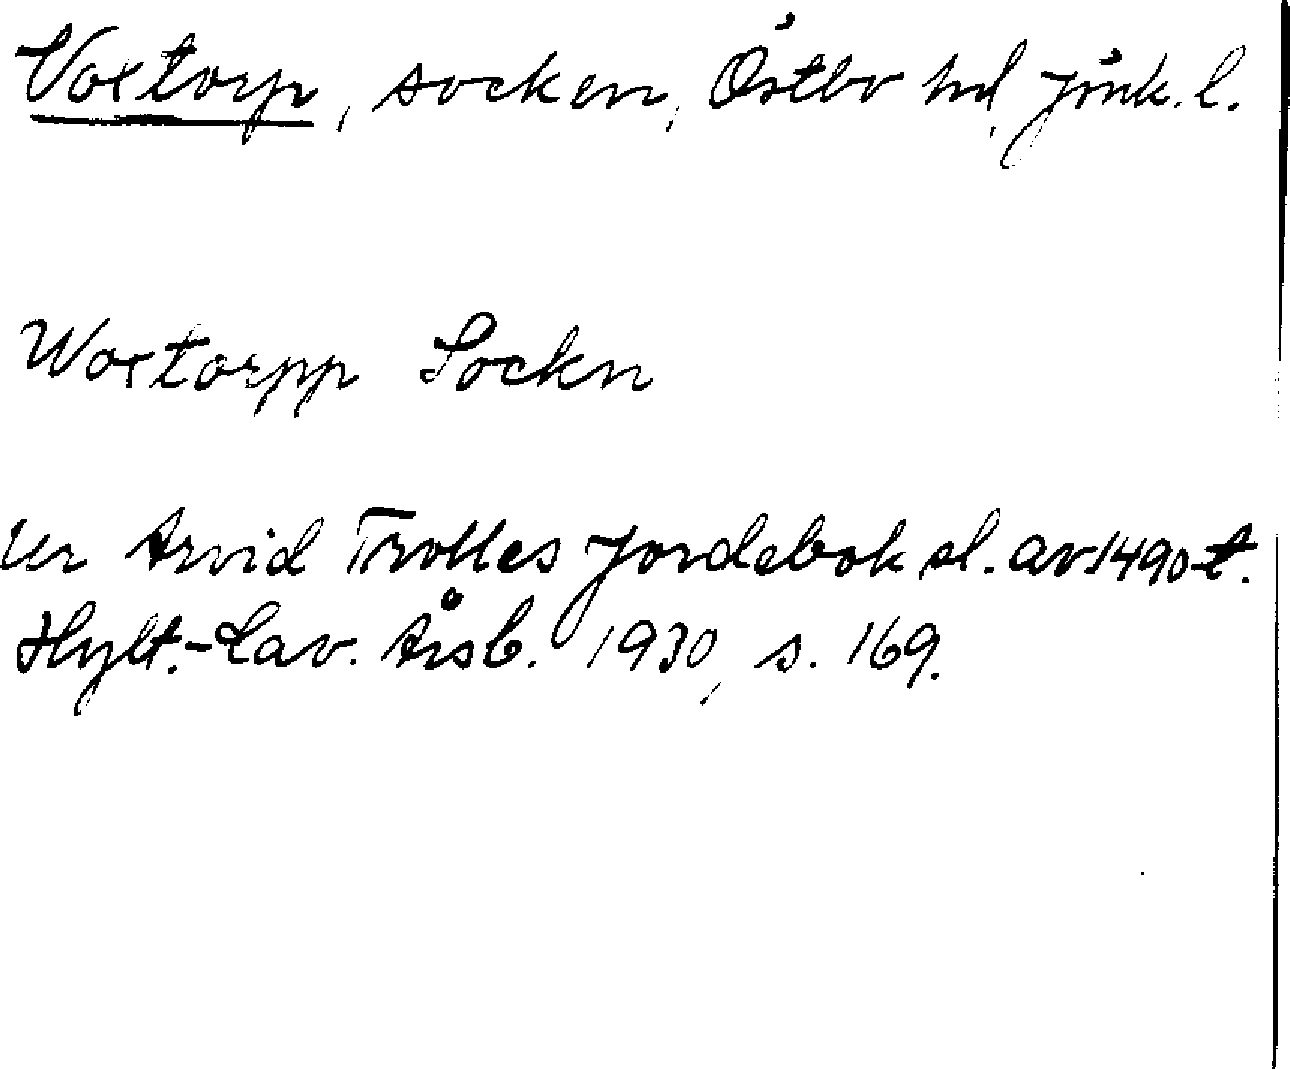 Voxtorp, socken, Östbo hd, Jönk. l.
Woxtorpp Sockn
Ur Arvid Trolles Jordebok sl. av 1490-t.
Hylt.-Cav. Årsb. 1930, s. 169.